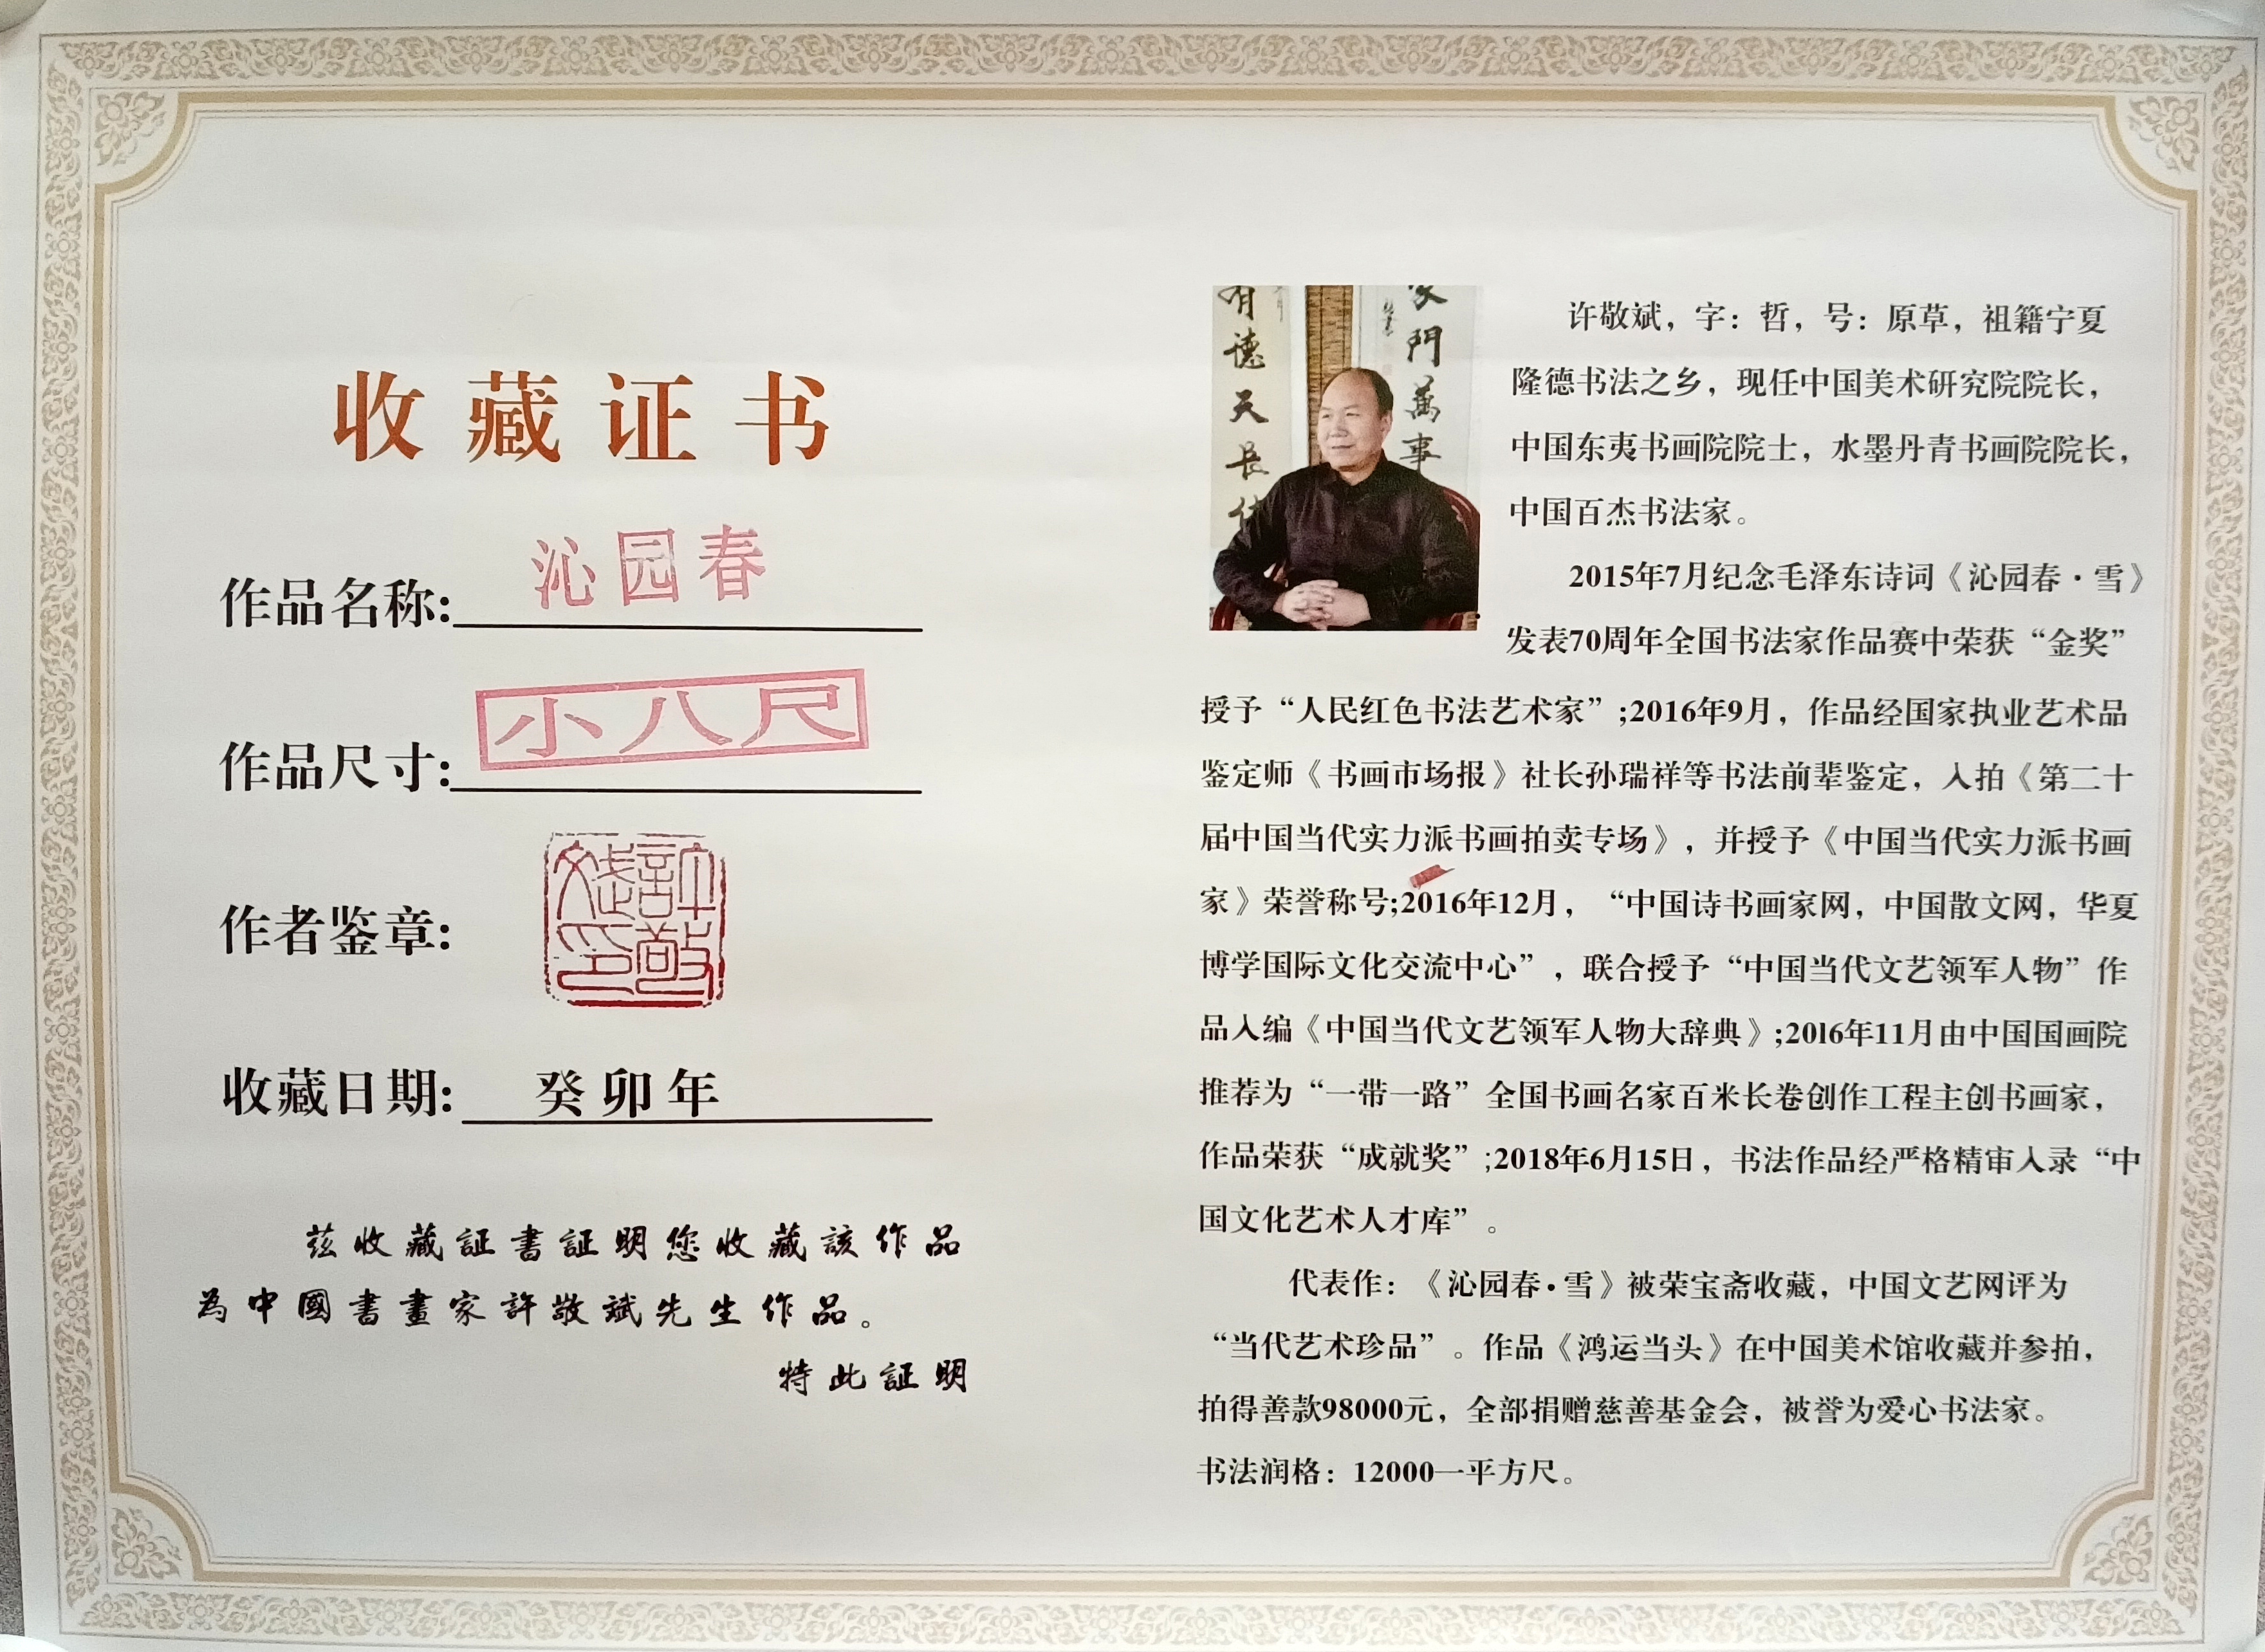 收藏证书
作品名称:沁园春
作品尺寸:小八尺
作者鉴章:
許敬斌印
收藏日期:癸卯年
兹收藏証書証明您收藏該作品
為中國書畫家許敬斌先生作品。
特此証明
有德天長
家門萬事
许敬斌，字：哲，号：原草，祖籍宁夏
隆德书法之乡，现任中国美术研究院院长，
中国东夷书画院院士，水墨丹青书画院院长，
中国百杰书法家。
2015年7月纪念毛泽东诗词《沁园春·雪》
发表70周年全国书法家作品赛中荣获“金奖”
授予“人民红色书法艺术家”;2016年9月，作品经国家执业艺术品
鉴定师《书画市场报》社长孙瑞祥等书法前辈鉴定，入拍《第二十
届中国当代实力派书画拍卖专场》，并授予《中国当代实力派书画
家》荣誉称号;2016年12月，“中国诗书画家网，中国散文网，华夏
博学国际文化交流中心”，联合授予“中国当代文艺领军人物”作
品入编《中国当代文艺领军人物大辞典》;20l6年11月由中国国画院
推荐为“一带一路”全国书画名家百米长卷创作工程主创书画家，
作品荣获“成就奖”;2018年6月15日，书法作品经严格精审入录“中
国文化艺术人才库”。
代表作：《沁园春·雪》被荣宝斋收藏，中国文艺网评为
“当代艺术珍品”。作品《鸿运当头》在中国美术馆收藏并参拍，
拍得善款98000元，全部捐赠慈善基金会，被誉为爱心书法家。
书法润格：12000一平方尺。